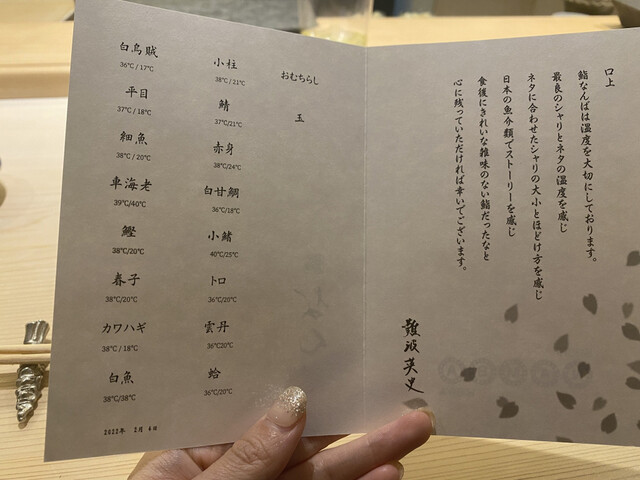 口上
鮨なんばは温度を大切にしております。
最良のシャリとネタの温度を感じ
ネタに合わせたシャリの大小とほどけ方を感じ
日本の魚介類でストーリーを感じ
食後にきれいな雑味のない鮨だったなと
心に残っていただければ幸いでございます。
難波英史
白烏賊
36℃ / 17℃
平目
37℃ / 18℃
細魚
38℃ / 20℃
車海老
39℃/40℃
鰹
38℃/20℃
春子
38℃/20℃
カワハギ
38℃ / 18℃
白魚
38℃/38℃
小柱
38℃ / 21℃
鯖
37℃/21℃
赤身
38℃/24℃
白甘鯛
36℃/18℃
小鰭
40℃/25℃
トロ
36℃/20℃
雲丹
36℃20℃
蛤
36℃/20℃
おむちらし
玉
2022年 2月 4日